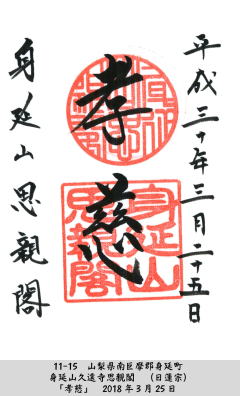 平成三十年三月二十五日
孝慈
身延山思親閣
身延山
思親閣
11-15　山梨県南巨摩郡身延町
身延山久遠寺思親閣　（日蓮宗）
「孝慈」　2018年3月25日